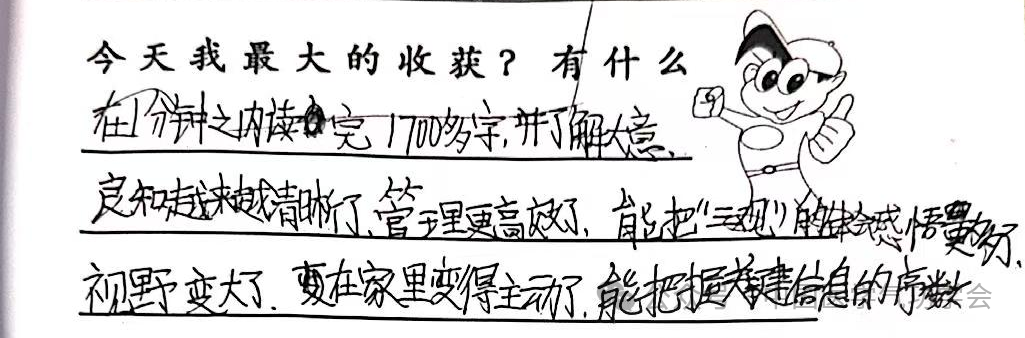 今天我最大的收获？有什么
在1分钟之内读完1700多字,并了解大意、
良知越来越清晰了、管理更高效了、能把“三观”的体会感悟
视野变大了、更在家里变得主动了,能把握关键信息的序数